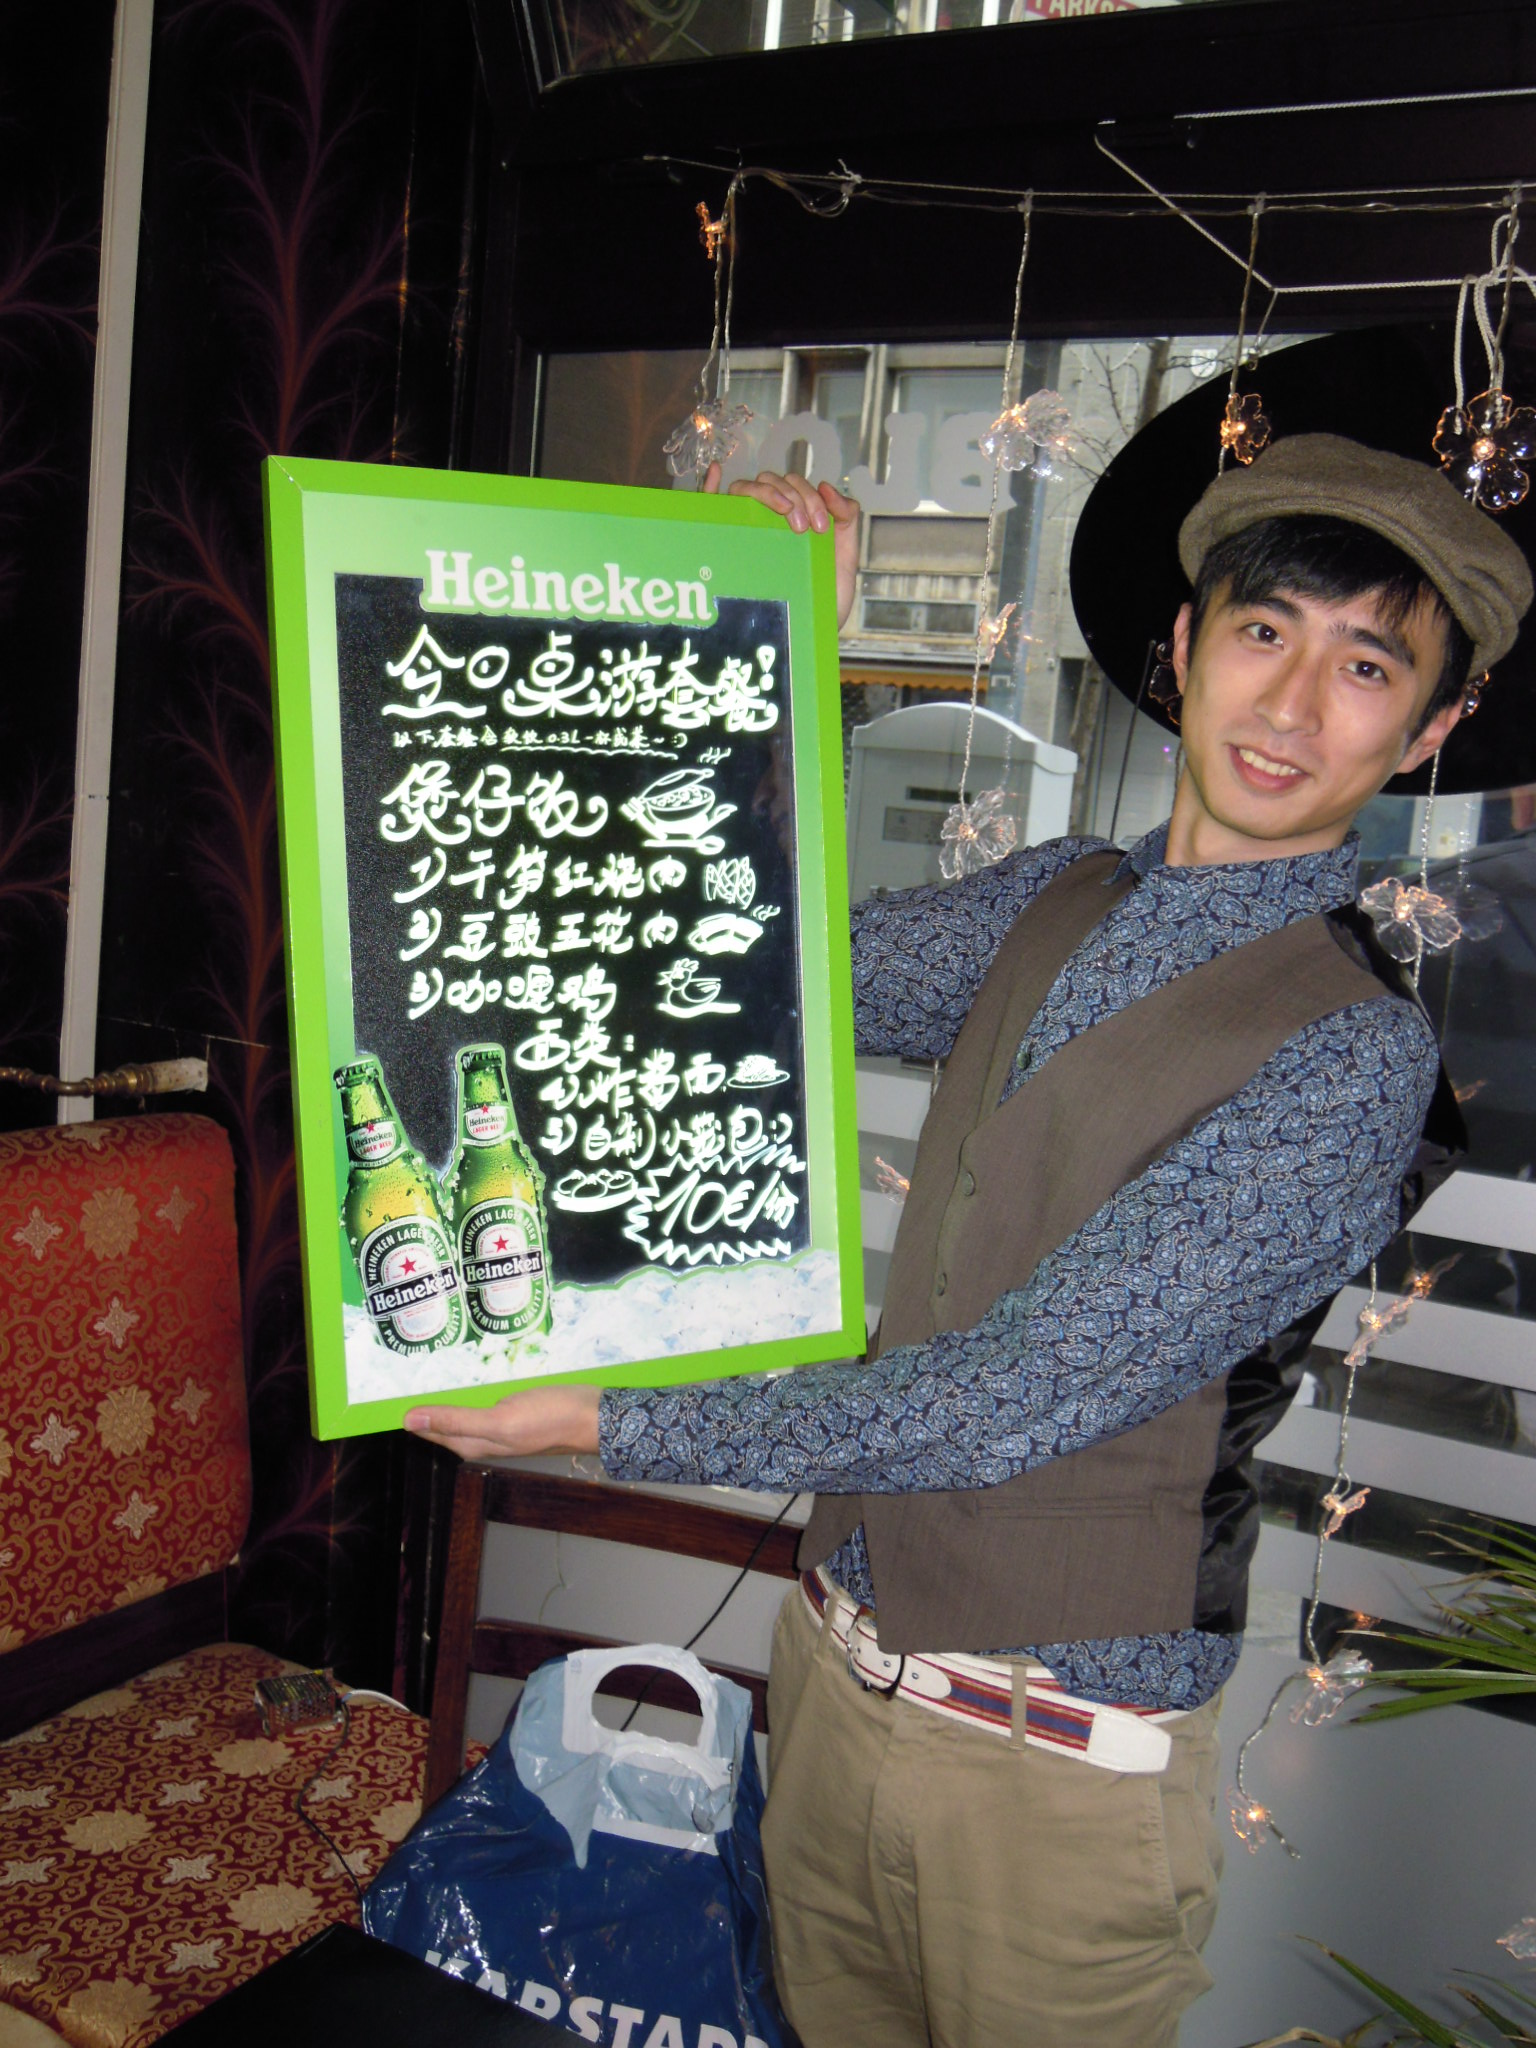 Heineken®
今日桌游套餐!
以下套餐含软饮0.3L一杯或茶~:)
煲仔饭
1) 干笋红烧肉
2) 豆豉五花肉
3) 咖喱鸡
面类:
4) 炸酱面
5) 自制小笼包:)
10€/份
Heineken
LAGER BEER
Heineken
LAGER BEER
HEINEKEN LAGER BEER
Heineken
PREMIUM QUALITY
HEINEKEN LAGER BEER
Heineken
PREMIUM QUALITY
KARSTADT